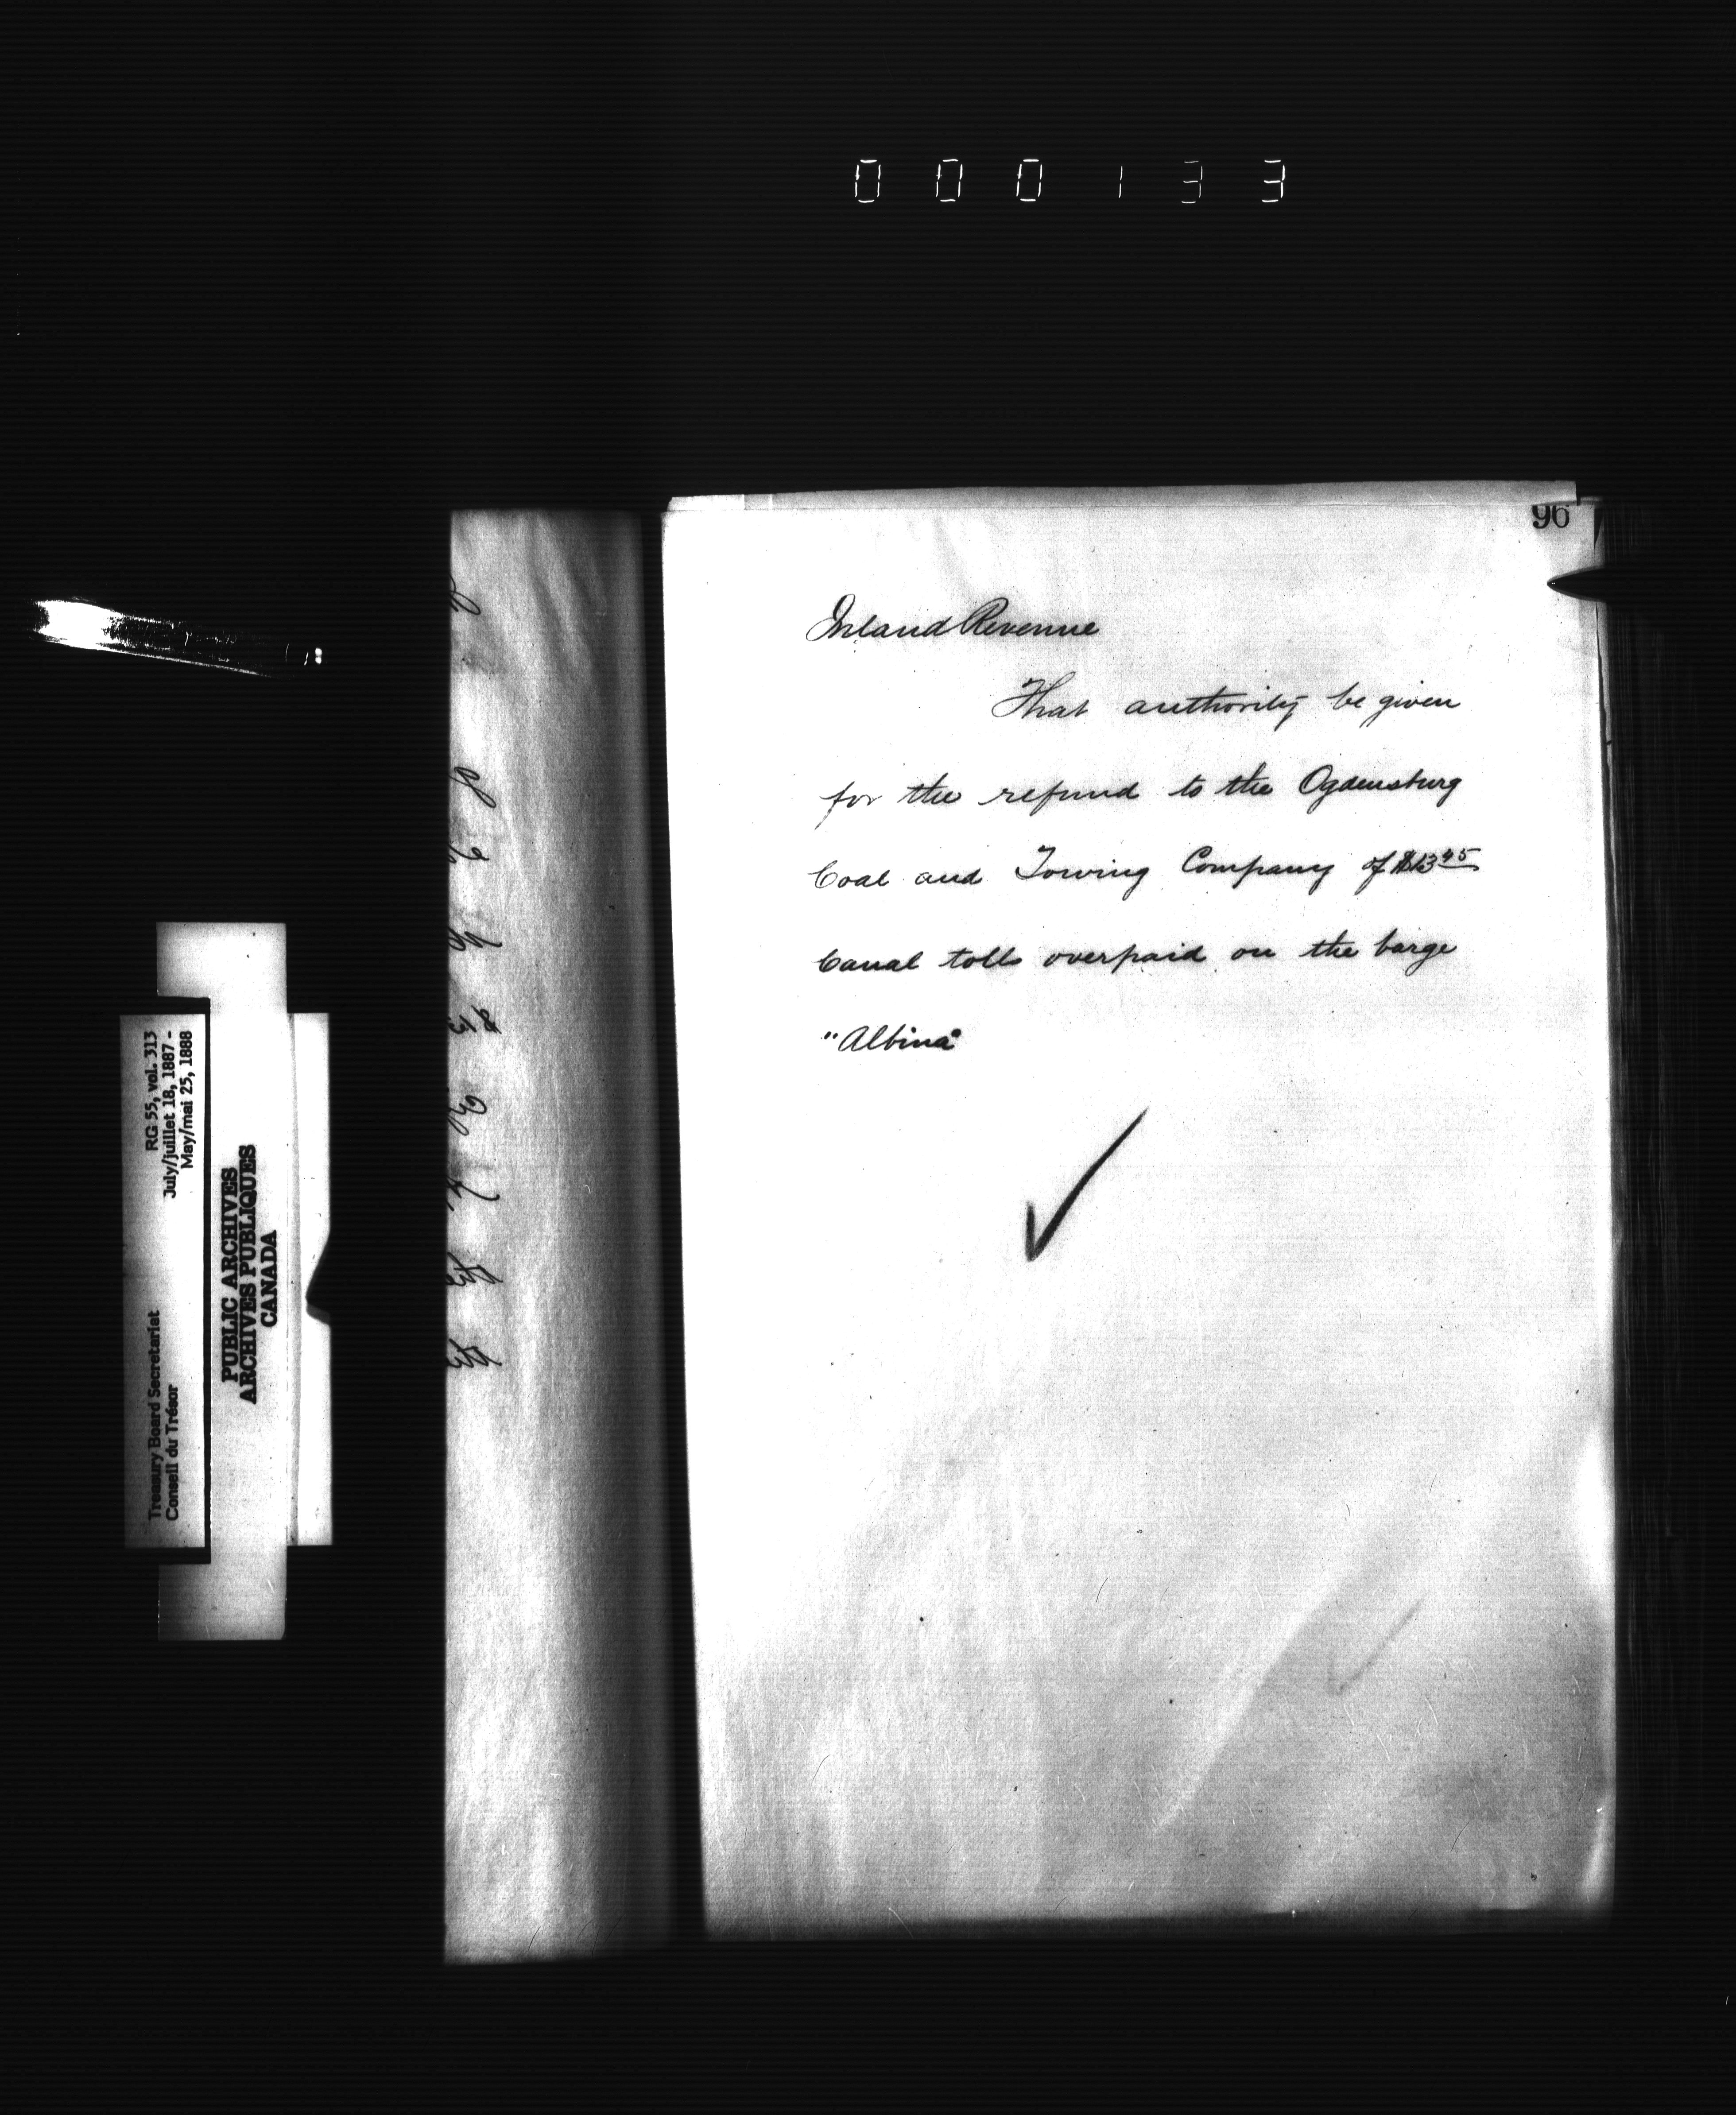 000133
96
Inland Revenue
That authority be given
for the refund to the Ogdensburg
Coal and Towing Company of $13.45
Canal tolls overpaid on the barge
"Albina"
RG 55, vol. 313
July/juillet 18, 1887 -
May/mai 25, 1888
Treasury Board Secretariat
Conseil du Trésor
PUBLIC ARCHIVES
ARCHIVES PUBLIQUES
CANADA